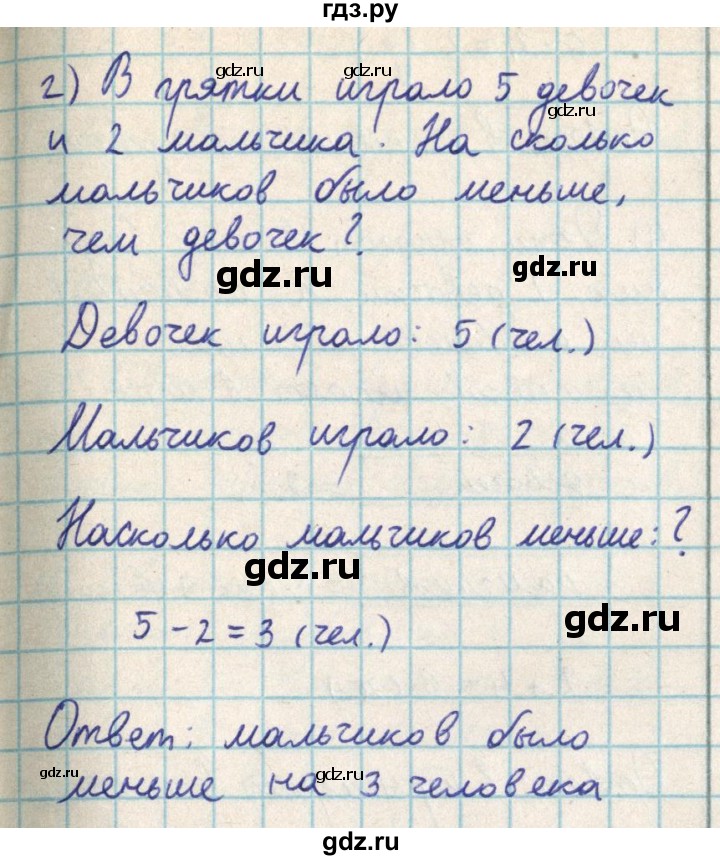 гдз.ру
gdz.ru gdz.ru
г) В прятки играло 5 девочек
и 2 мальчика. На сколько
мальчиков было меньше,
чем девочек?
gdz.ru gdz.ru
Девочек играло: 5 (чел.)
Мальчиков играло: 2 (чел.)
Насколько мальчиков меньше: ?
gdz.ru
5 - 2 = 3 (чел.)
gdz.ru
Ответ: мальчиков было
gdz.ru gdz.ru
меньше на 3 человека
gdz.ru